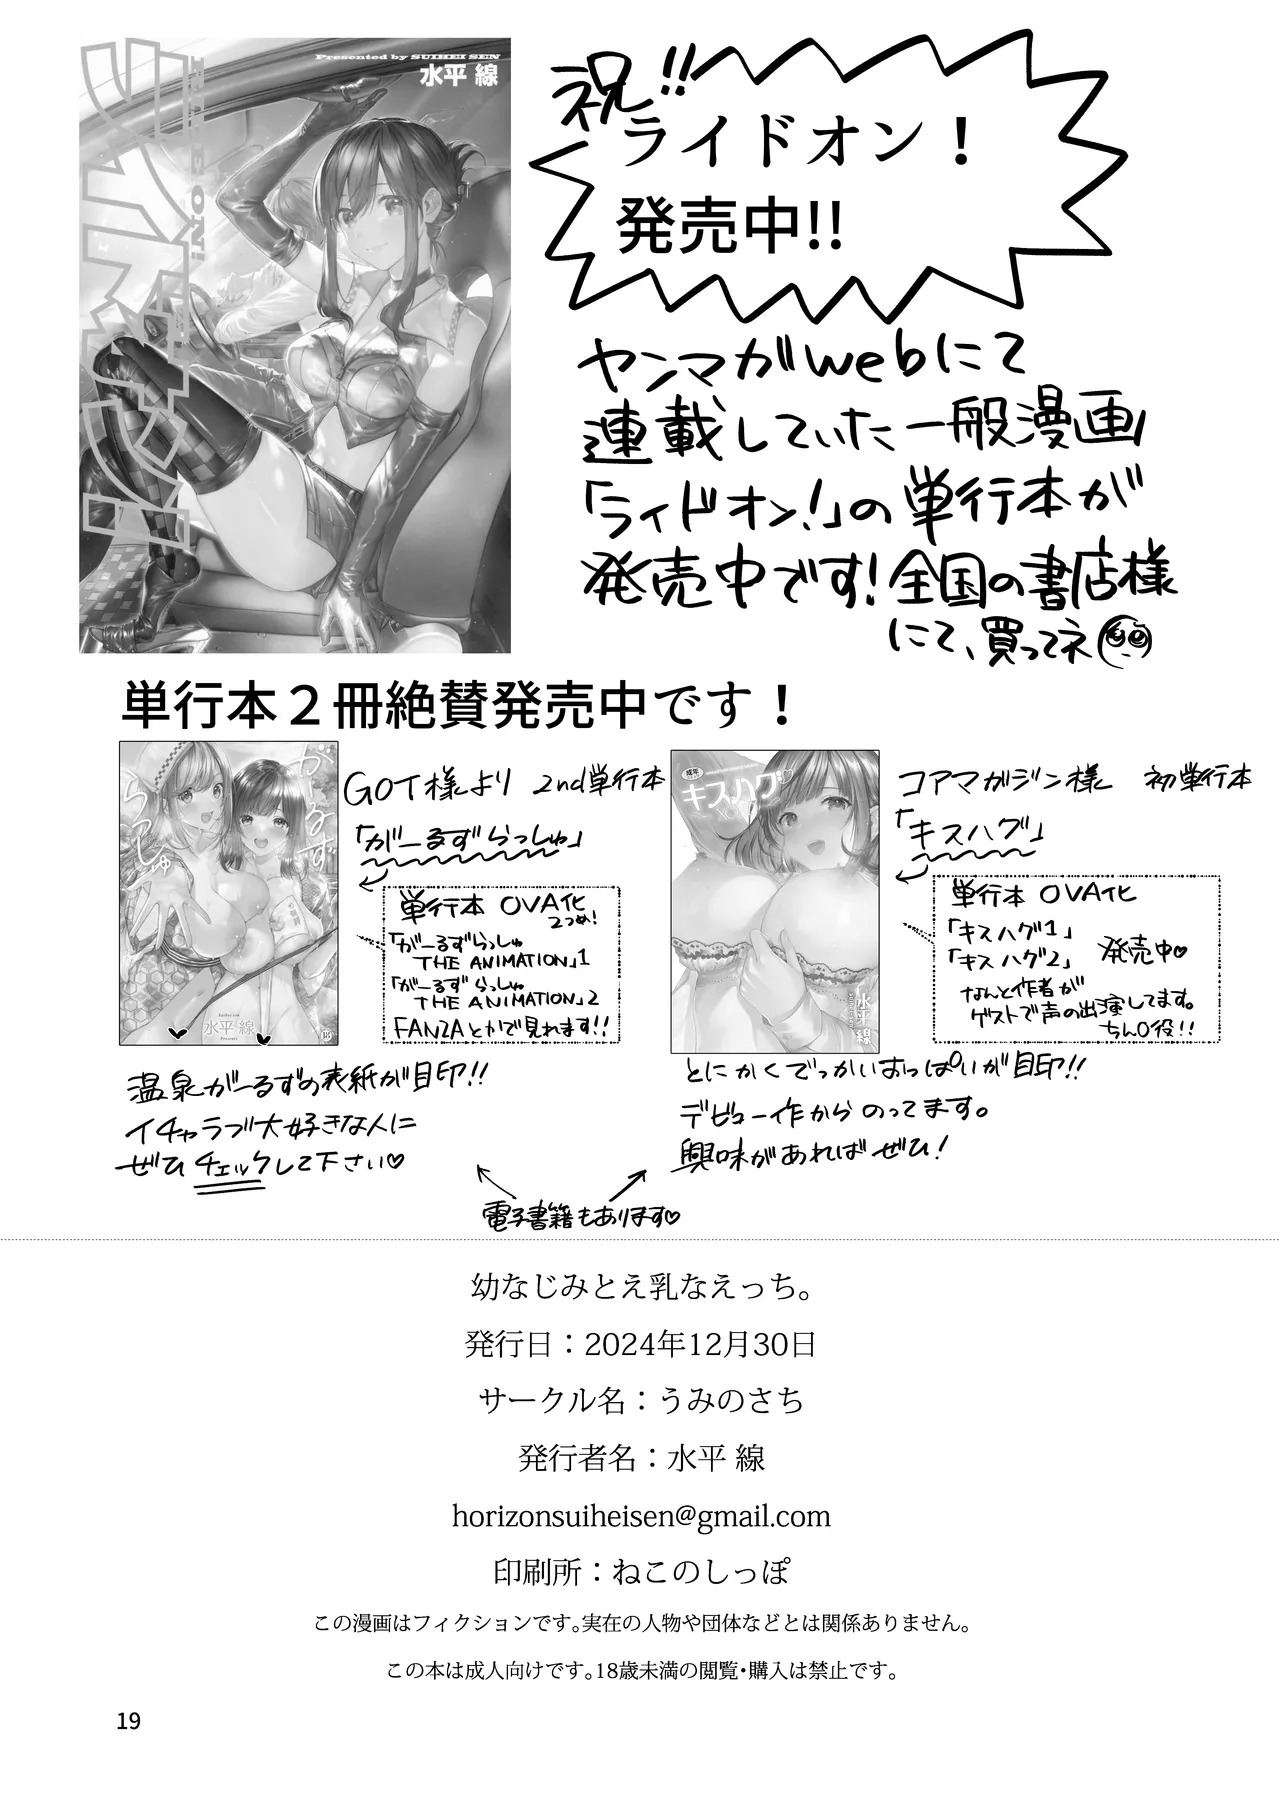 Presented by SUIHEI SEN
水平 線
RIDE ON!
ライドオン!
祝!!
ライドオン！
発売中!!
ヤンマガwebにて
連載していた一般漫画
「ライドオン!」の単行本が
発売中です!全国の書店様
にて、買ってネ
単行本２冊絶賛発売中です！
がーるず
らっしゅ
Suihei sen
水平 線
Presents
GOT様より 2nd単行本
「がーるずらっしゅ」
単行本 OVA化
2つめ!
「がーるずらっしゅ
THE ANIMATION」1
「がーるずらっしゅ
THE ANIMATION」2
FANZAとかで見れます!!
温泉がーるずの表紙が目印!!
イチャラブ大好きな人に
ぜひチェックして下さい♡
成年
キスハグ
水平線
コアマガジン様 初単行本
「キスハグ」
単行本 OVA化
「キスハグ1」
「キスハグ2」 発売中♥
なんと作者が
ゲストで声の出演してます。
ちん〇役!!
とにかくでっかいおっぱいが目印!!
デビュー作からのってます。
興味があればぜひ!
電子書籍もあります♡
幼なじみとえ乳なえっち。
発行日：2024年12月30日
サークル名：うみのさち
発行者名：水平 線
horizonsuiheisen@gmail.com
印刷所：ねこのしっぽ
この漫画はフィクションです。実在の人物や団体などとは関係ありません。
この本は成人向けです。18歳未満の閲覧・購入は禁止です。
19